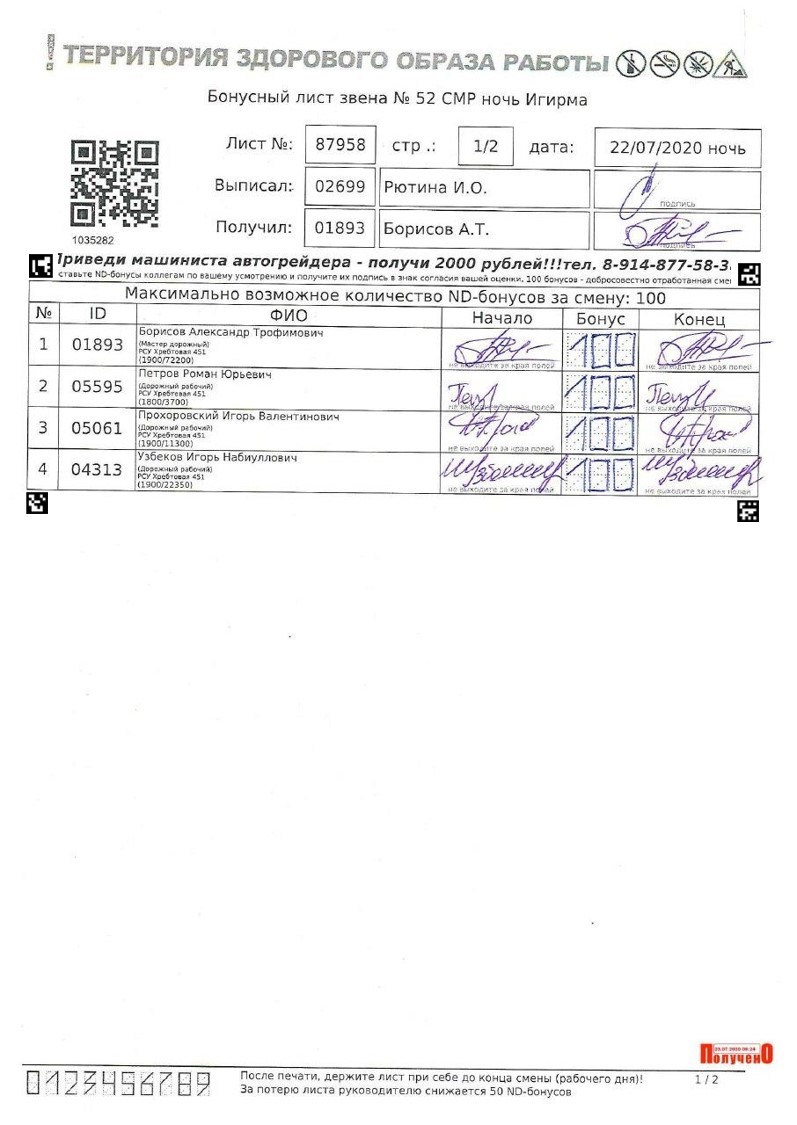 ! ТЕРРИТОРИЯ ЗДОРОВОГО ОБРАЗА РАБОТЫ
Бонусный лист звена № 52 СМР ночь Игирма
Лист №: 87958 стр .: 1/2 дата: 22/07/2020 ночь
Выписал: 02699 Рютина И.О.
подпись
Получил: 01893 Борисов А.Т.
подпись
1035282
Приведи машиниста автогрейдера - получи 2000 рублей!!!тел. 8-914-877-58-3
ставьте ND-бонусы коллегам по вашему усмотрению и получите их подпись в знак согласия вашей оценки, 100 бонусов - добросовестно отработанная сме
Максимально возможное количество ND-бонусов за смену: 100
№ ID ФИО Начало Бонус Конец
1 01893 Борисов Александр Трофимович 100
(Мастер дорожный)
РСУ Хребтовая 451
(1900/72200)
не выходите за края полей не выходите за края полей
2 05595 Петров Роман Юрьевич 100
(Дорожный рабочий)
РСУ Хребтовая 451
(1800/3700)
не выходите за края полей не выходите за края полей
3 05061 Прохоровский Игорь Валентинович 100
(Дорожный рабочий)
РСУ Хребтовая 451
(1900/11300)
не выходите за края полей не выходите за края полей
4 04313 Узбеков Игорь Набиуллович 100
(Дорожный рабочий)
РСУ Хребтовая 451
(1900/22350)
не выходите за края полей не выходите за края полей
ПолученО
0123456789 После печати, держите лист при себе до конца смены (рабочего дня)! 1 / 2
За потерю листа руководителю снижается 50 ND-бонусов